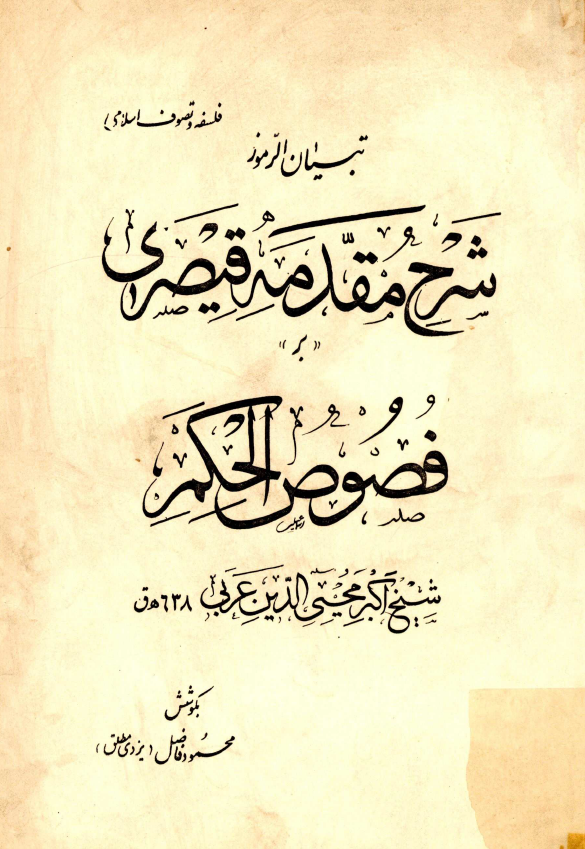 فلسفه و تصوف اسلامی)
تبیان الرّموز
شَرحِ مُقدّمَه قِیصَری
«بر»
فُصُوصُ الحِکَمِ
شیخ اکبر محیی الدّین عَرَبی ٦٣٨ هـ ق
بکوشش
محمود فاضل (یزدی مطلق)